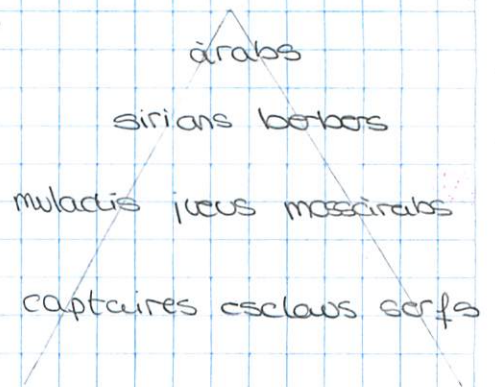 àrabs
sirians berbers
muladis jueus mossàrabs
captaires esclaus serfs